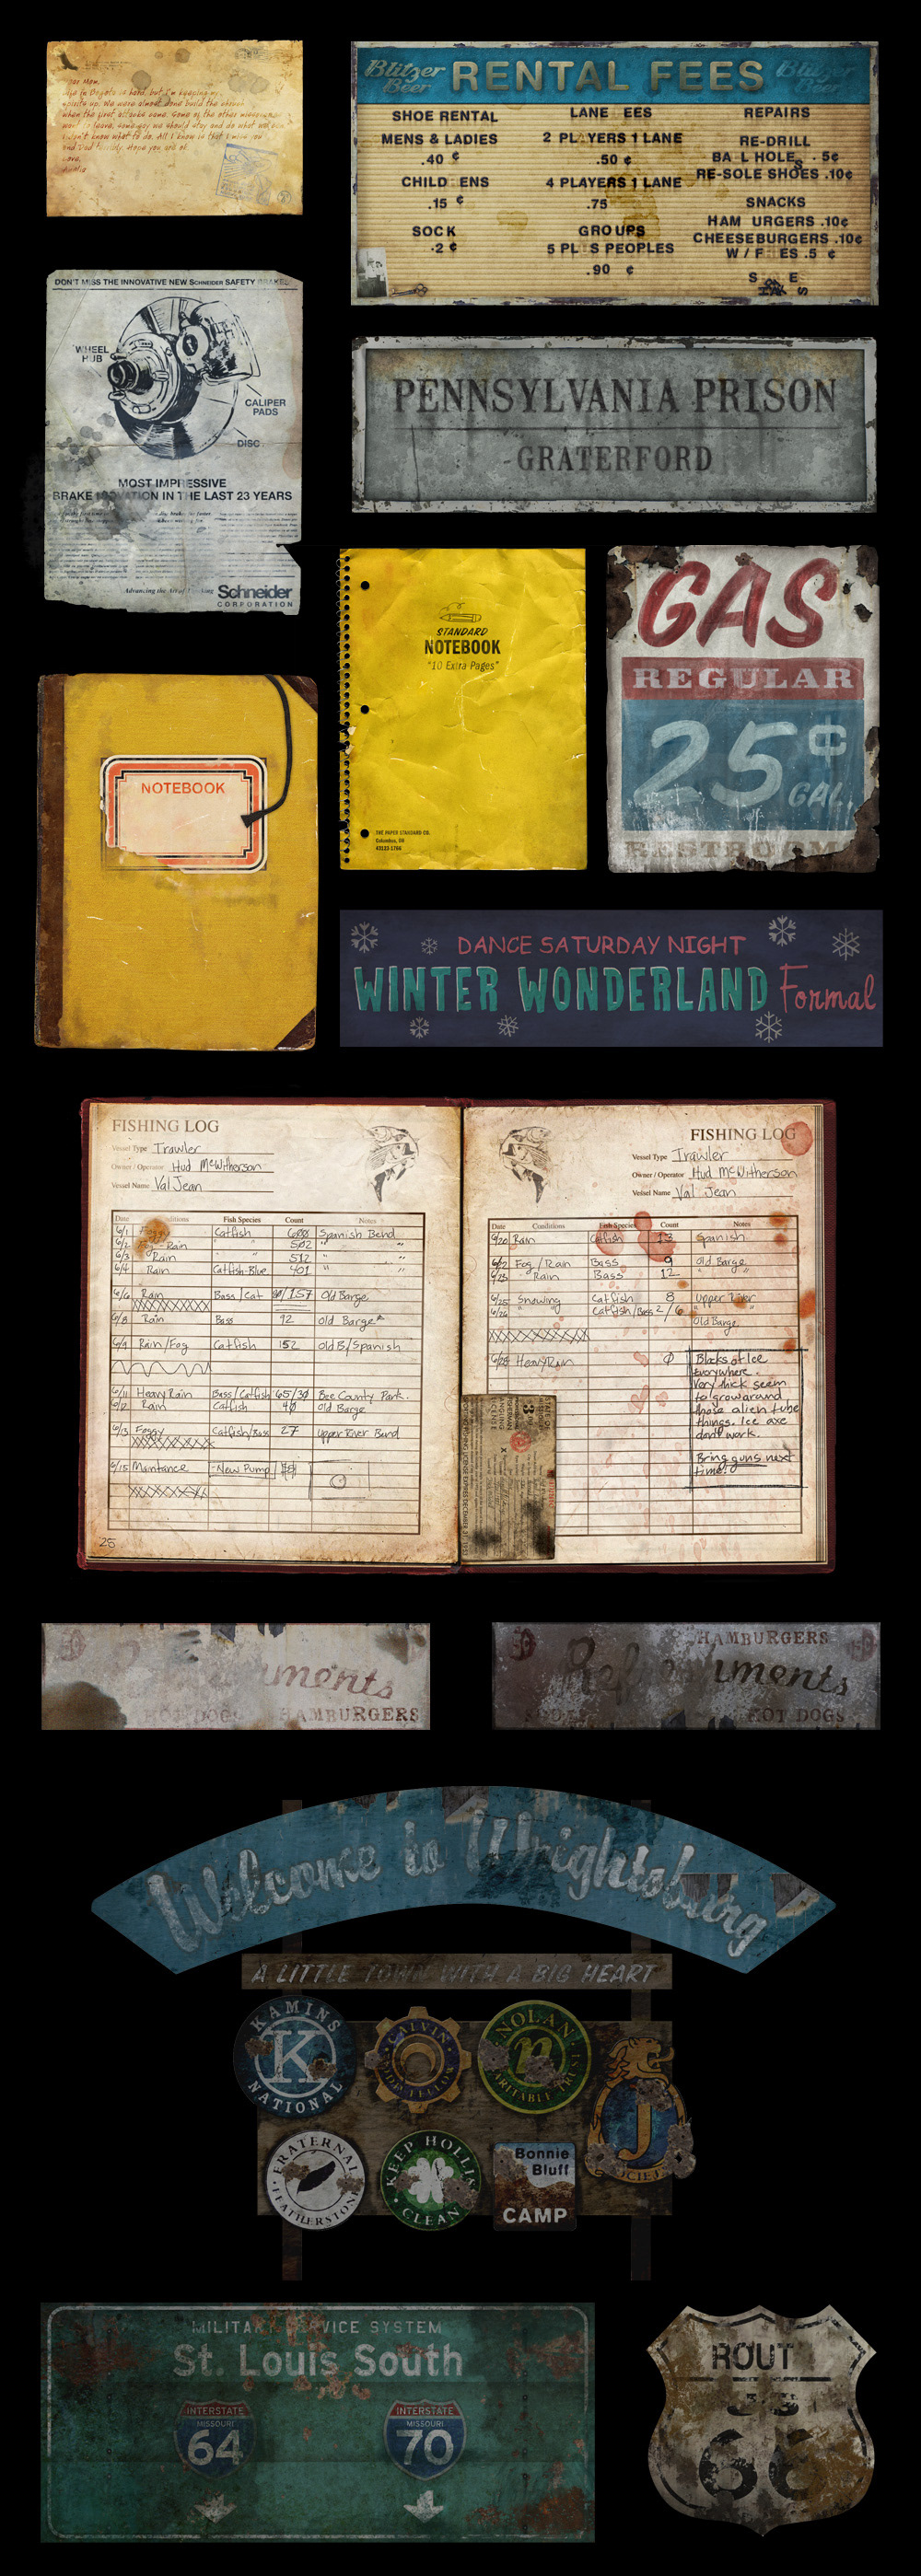 Dear Mom,
Life in Bogota is hard, but I'm keeping my
spirits up. We were almost done build the church
when the first attacks came. Some of the other
want to leave, some say we should stay and do what we can.
I don't know what to do. All I know is that I miss you
and Dad terribly. Hope you are ok.
Love,
Blitzer Beer RENTAL FEES Blitzer Beer
SHOE RENTAL
MENS & LADIES
.40 ¢
CHILD ENS
.15 ¢
SOCK
.2 ¢
LANE EES
2 PL YERS 1 LANE
.50 ¢
4 PLAYERS 1 LANE
.75
GROUPS
5 PL S PEOPLES
.90 ¢
REPAIRS
RE-DRILL
BA L HOLES . 5¢
RE-SOLE SHOES .10¢
SNACKS
HAM URGERS .10¢
CHEESEBURGERS .10¢
W / F ES .5 ¢
DON'T MISS THE INNOVATIVE NEW SCHNEIDER SAFETY BRAKES
WHEEL
HUB
CALIPER
PADS
DISC
MOST IMPRESSIVE
BRAKE INOVATION IN THE LAST 23 YEARS
Advancing the Art of
Schneider
CORPORATION
PENNSYLVANIA PRISON
GRATERFORD
STANDARD
NOTEBOOK
"10 Extra Pages"
THE PAPER STANDARD CO.
Columbus, OH
43123-1766
GAS
REGULAR
25¢
GAL.
NOTEBOOK
DANCE SATURDAY NIGHT
WINTER WONDERLAND Formal
FISHING LOG
Vessel Type Trawler
Owner / Operator Hud McWitherson
Vessel Name Val Jean
Date Conditions Fish Species Count Notes
6/1 Foggy Catfish 600 Spanish Bend
6/2 Fog - Rain " " 502 " "
6/3 Rain " " 512 " "
6/4 Rain Catfish-Blue 401 " "
6/6 Rain Bass/Cat /157 Old Barge
6/8 Rain Bass 92 Old Barge
6/9 Rain/Fog Catfish 152 Old B/Spanish
6/11 Heavy Rain Bass/Catfish 65/30 Bee County Park.
6/12 Rain Catfish 40 Old Barge
6/13 Foggy Catfish/Bass 27 Upper River Bend
6/15 Maintance -New Pump
25
FISHING LOG
Vessel Type Trawler
Owner / Operator Hud McWitherson
Vessel Name Val Jean
Date Conditions Fish Species Count Notes
6/20 Rain Catfish 13 Spanish
6/22 Fog/Rain Bass 9 Old Barge
6/23 Rain Bass 12 " "
6/25 Snowing Catfish 8 Upper River
6/26 " Catfish/Bass 2/6 "
Old Barge
6/28 Heavy Rain 0
Blocks of Ice
Everywhere.
Very thick seem
to grow around
those alien tube
things. Ice axe
don't work.
Bring guns next
time!
ments
HOT DOGS HAMBURGERS
HAMBURGERS
Ref ments
HOT DOGS
Welcome to Wrightsburg
A LITTLE TOWN WITH A BIG HEART
KAMINS
K
NATIONAL
CALVIN
ODDFELLOW
NOLAN
n
CHARITABLE TRUST
J
SOCIETY
FRATERNAL
FEATHERSTONE
KEEP HOLLIS
CLEAN
Bonnie
Bluff
CAMP
MILITARY SERVICE SYSTEM
St. Louis South
INTERSTATE
MISSOURI
64
INTERSTATE
MISSOURI
70
ROUT
US
66